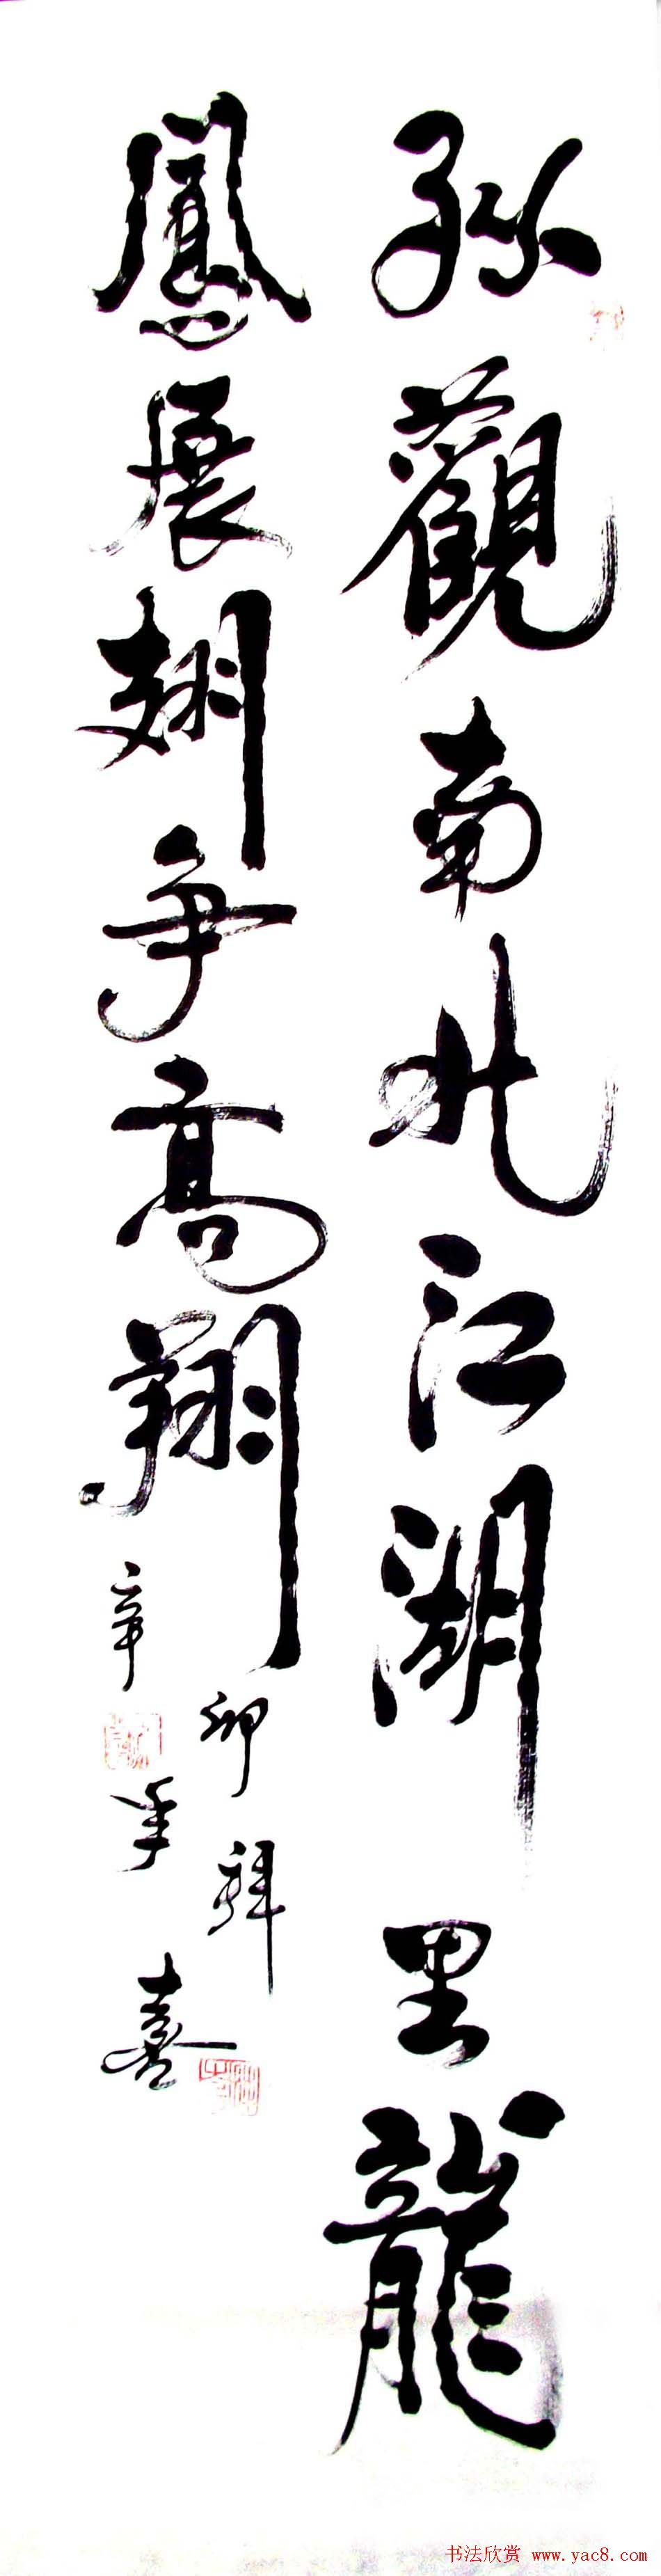 纵觀南北江湖里龍
鳳展翅争高翔
辛卯年拜喜
书法欣赏 www.yac8.com